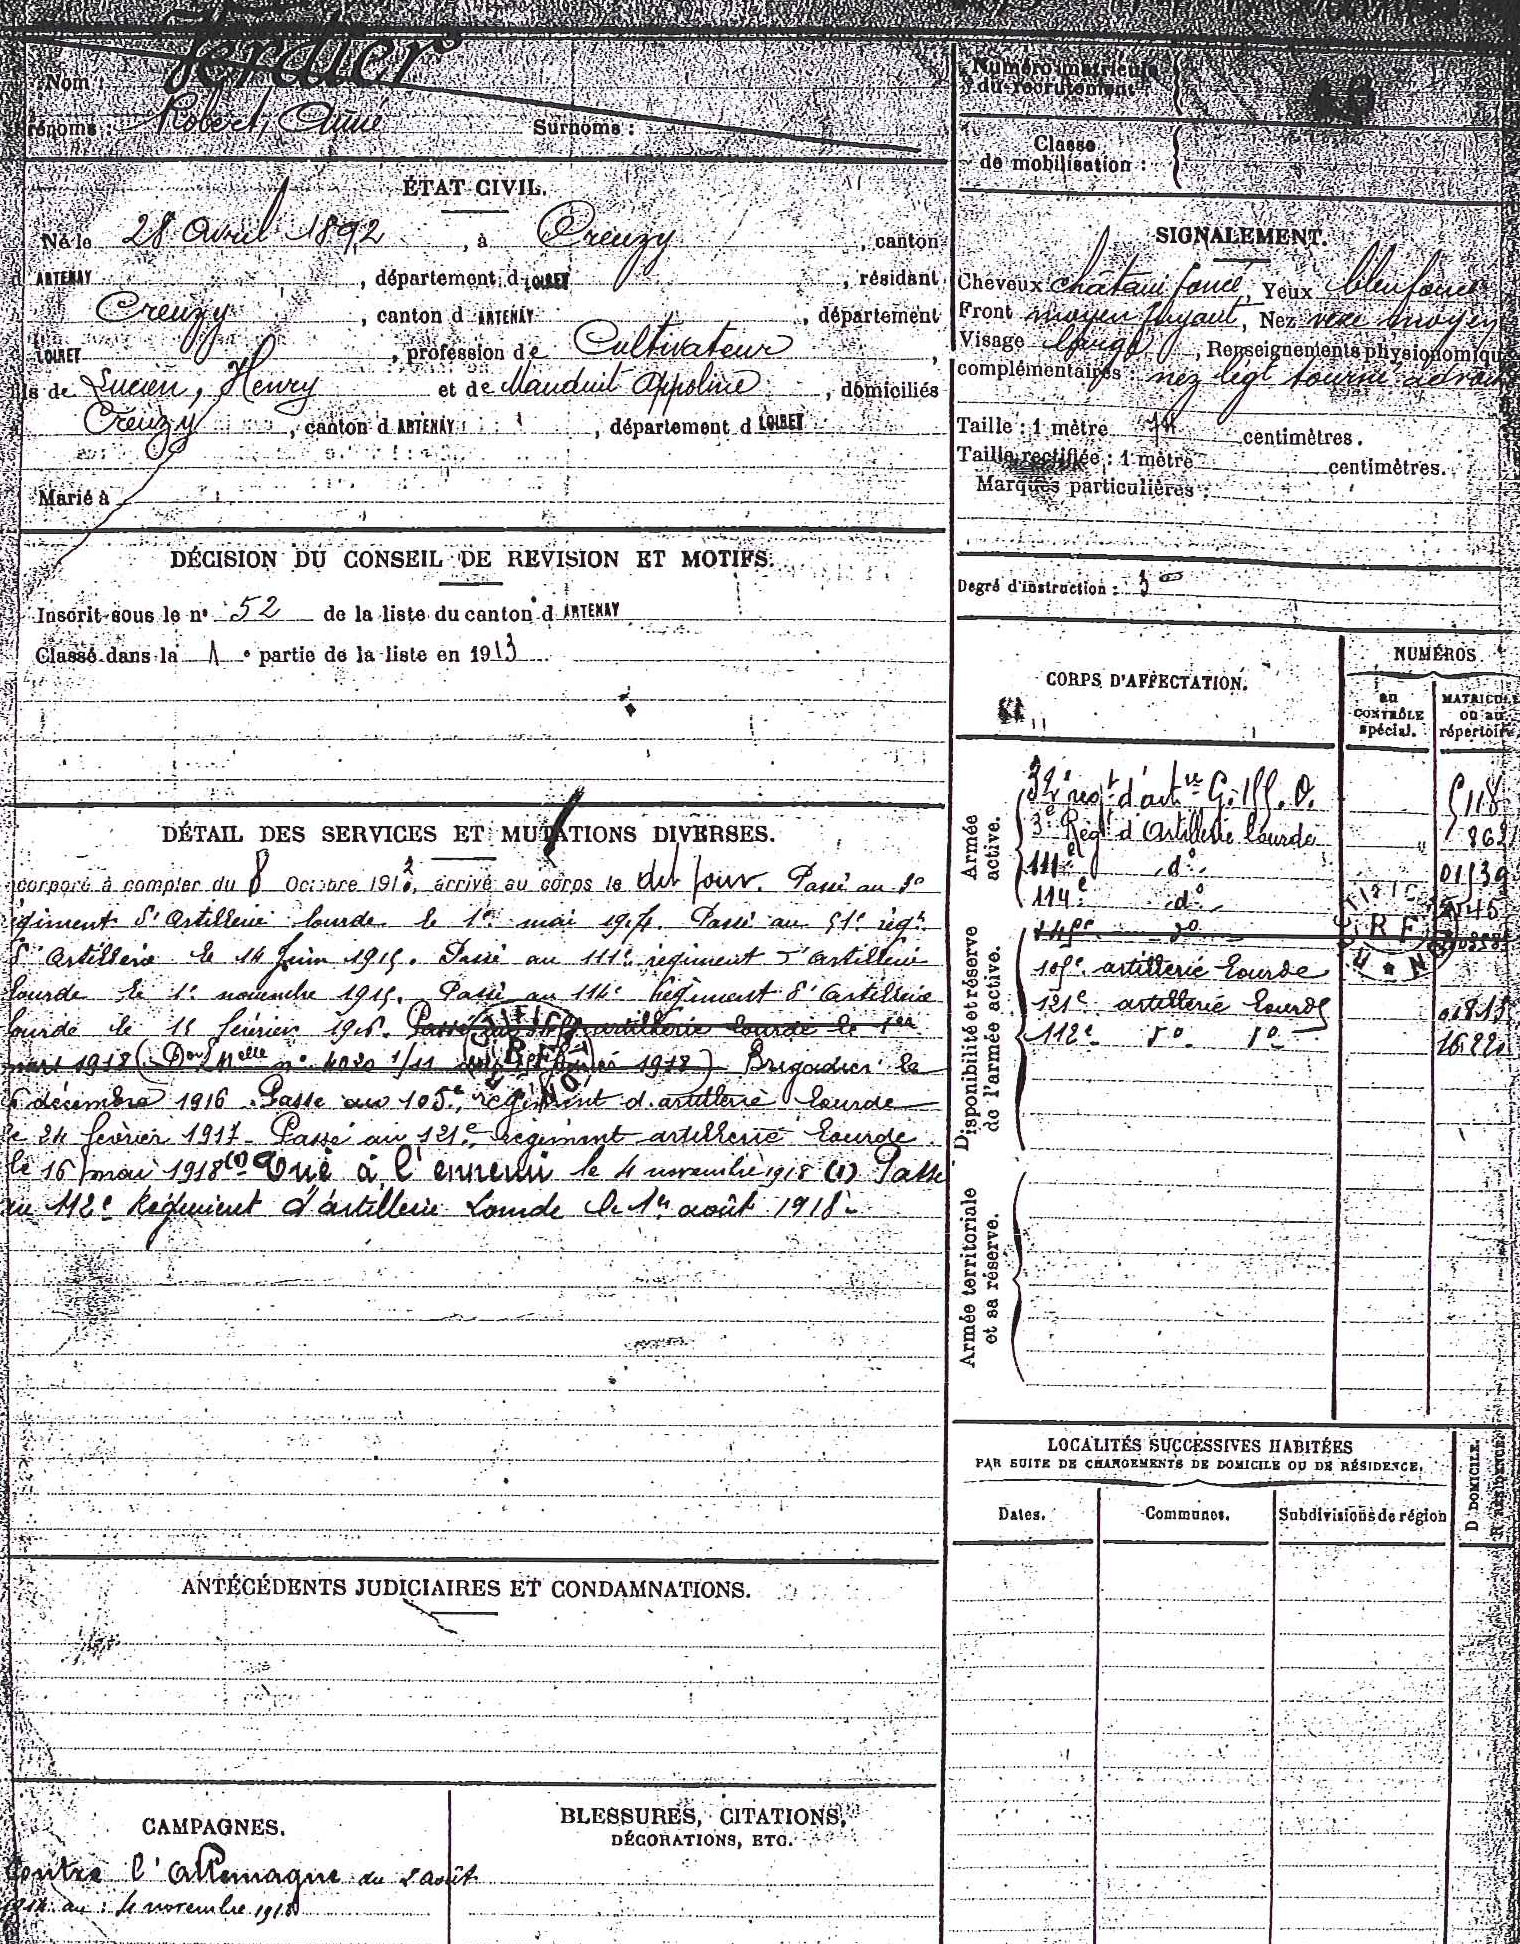 Nom : Verdier
Prénoms : Robert, Aimé Surnoms :
ÉTAT CIVIL.
Né le 28 Avril 1892, à Creuzy, canton
d ARTENAY, département d LOIRET, résidant
à Creuzy, canton d ARTENAY, département
LOIRET, profession de Cultivateur,
fils de Lucien, Henry et de Mauduit Appoline, domiciliés
à Creuzy, canton d ARTENAY, département d LOIRET
Marié à
DÉCISION DU CONSEIL DE REVISION ET MOTIFS.
Inscrit sous le n° 52 de la liste du canton d ARTENAY
Classé dans la 1e partie de la liste en 1913
DÉTAIL DES SERVICES ET MUTATIONS DIVERSES.
Incorporé à compter du 8 Octobre 1913, arrivé au corps le dit jour. Passé au 3e
régiment d'Artillerie lourde le 1er mai 1914. Passé au 51e régt
d'Artillerie le 14 Juin 1915. Passé au 111e régiment d'artillerie
lourde le 1er novembre 1915. Passé au 114e Régiment d'Artillerie
lourde le 15 février 1916. Passé au artillerie lourde le 1er
mars 1918 (Don Mlle n° 4020 1/11 du février 1918) Brigadier le
6 décembre 1916. Passé au 105e régiment d'artillerie lourde
le 24 février 1917. Passé au 121e régiment artillerie lourde
le 16 mai 1918 (1) Tué à l'ennemi le 4 novembre 1918 (1) Passé
au 112e Régiment d'artillerie Lourde le 1er août 1918.
ANTÉCÉDENTS JUDICIAIRES ET CONDAMNATIONS.
CAMPAGNES.
Contre l'Allemagne du 2 août
1914 au : 4 novembre 1918
BLESSURES, CITATIONS,
DÉCORATIONS, ETC.
Numéro matricule
du recrutement
Classe
de mobilisation :
SIGNALEMENT.
Cheveux châtain foncé Yeux bleu foncé
Front moyen fuyant, Nez vexe moyen
Visage large, Renseignements physionomiques
complémentaires : nez legt tourné à droite
Taille : 1 mètre 74 centimètres.
Taille rectifiée : 1 mètre centimètres.
Marques particulières :
Degré d'instruction : 3
CORPS D'AFFECTATION.
NUMÉROS
au CONTRÔLE spécial.
MATRICULE ou au répertoire
Armée active.
32e regt d'artie
3e Régt d'Artillerie lourde
111e d°
114e d°
Disponibilité et réserve de l'armée active.
105e artillerie Lourde
121e artillerie Lourde
112e d° d°
Armée territoriale et sa réserve.
LOCALITÉS SUCCESSIVES HABITÉES
PAR SUITE DE CHANGEMENTS DE DOMICILE OU DE RÉSIDENCE.
Dates. Communes. Subdivisions de région
D DOMICILE.
R RÉSIDENCE.